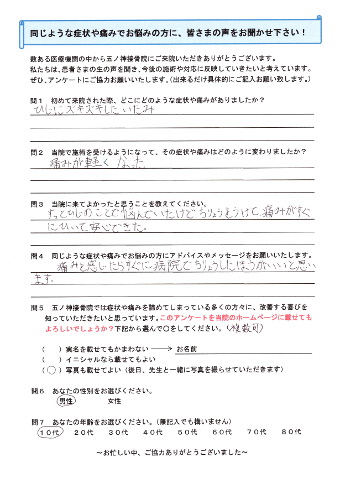 同じような症状や痛みでお悩みの方に、皆さまの声をお聞かせ下さい!
数ある医療機関の中から五ノ神接骨院にご来院いただきありがとうございます。
私たちは、患者さまの生の声を聞き、今後の施術や対応に反映していきたいと考えています。
ぜひ、アンケートにご協力お願いいたします。(出来るだけ具体的にご記入お願い致します。)
問1 初めて来院された際、どこにどのような症状や痛みがありましたか?
ひじにズキズキしたいたみ
問2 当院で施術を受けるようになって、その症状や痛みはどのように変わりましたか?
痛みが軽くなった
問3 当院に来てよかったと思うことを教えてください。
ずっとひじのことで悩んでいたけどちりょうをうけて痛みがすぐ
にひいて安心できた。
問4 同じような症状や痛みでお悩みの方にアドバイスやメッセージをお願いします。
痛みを感じたらすぐに病院でちりょうしたほうがいいと思い
ます。
問5 五ノ神接骨院では症状や痛みを諦めてしまっている多くの方々に、改善する喜びを
知っていただきたいと思っています。このアンケートを当院のホームページに載せても
よろしいでしょうか?下記から選んで○をしてください。(複数可)
( )実名を載せてもかまわない → お名前
( )イニシャルなら載せてもよい
(○)写真も載せてよい(後日、先生と一緒に写真を撮らせていただきます)
問6 あなたの性別をお選びください。
男性 女性
問7 あなたの年齢をお選びください。(無記入でも構いません)
10代 20代 30代 40代 50代 60代 70代 80代
~お忙しい中、ご協力ありがとうございました~